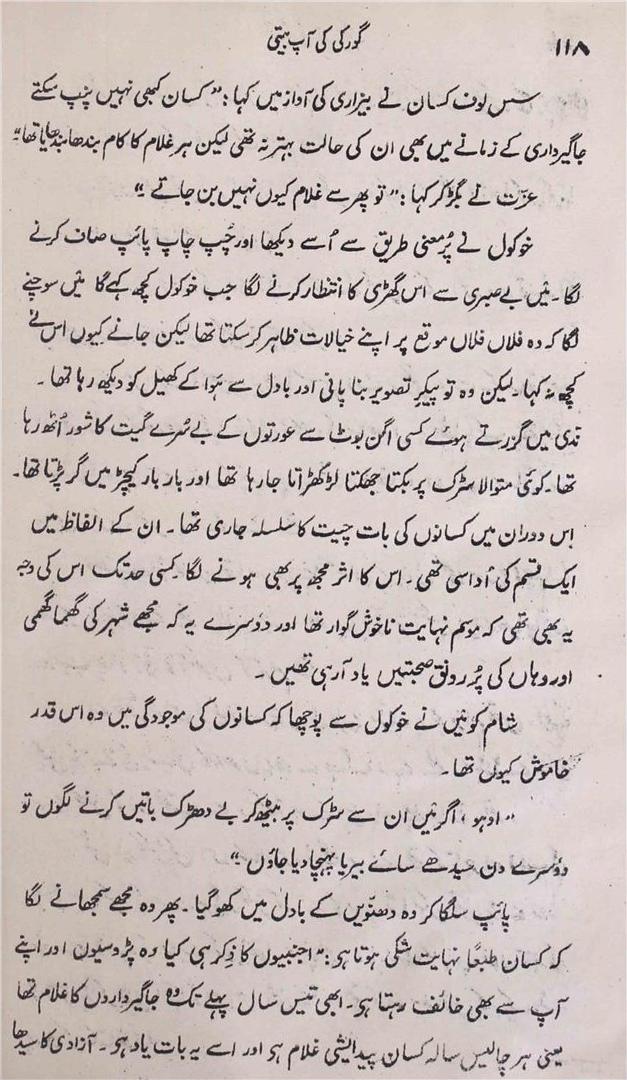 ۱۱۸
گورکی کی آپ بیتی
سس لوف کسان نے بیزاری کی آواز میں کہا: "کسان کبھی نہیں پنپ سکتے
جاگیرداری کے زمانے میں بھی ان کی حالت بہتر نہ تھی لیکن ہر غلام کا کام بندھا بندھایا تھا"
عزت نے بگڑ کر کہا: "تو پھر سے غلام کیوں نہیں بن جاتے۔"
خوکول نے پُر معنی طریق سے اُسے دیکھا اور چُپ چاپ پائپ صاف کرنے
لگا۔ میں بے صبری سے اس گھڑی کا انتظار کرنے لگا جب خوکول کچھ کہے گا میں سوچنے
لگا کہ وہ فلاں فلاں موقع پر اپنے خیالات ظاہر کر سکتا تھا لیکن جانے کیوں اس نے
کچھ نہ کہا۔ لیکن وہ تو پیکرِ تصویر بنا پانی اور بادل سے ہَوا کے کھیل کو دیکھ رہا تھا۔
ندی میں گزرتے ہوئے کسی اگن بوٹ سے عورتوں کے بے سُرے گیت کا شور اُٹھ رہا
تھا۔ کوئی متوالا سڑک پر بکتا جھکتا لڑکھڑاتا جا رہا تھا اور بار بار کیچڑ میں گر پڑتا تھا۔
اس دوران میں کسانوں کی بات چیت کا سلسلہ جاری تھا۔ ان کے الفاظ میں
ایک قسم کی اُداسی تھی۔ اس کا اثر مجھ پر بھی ہونے لگا۔ کسی حد تک اس کی وجہ
یہ بھی تھی کہ موسم نہایت ناخوش گوار تھا اور دوسرے یہ کہ مجھے شہر کی گھما گھمی
اور وہاں کی پُر رونق صحبتیں یاد آ رہی تھیں۔
شام کو میں نے خوکول سے پوچھا کہ کسانوں کی موجودگی میں وہ اس قدر
خاموش کیوں تھا۔
"اوہو، اگر میں ان سے سڑک پر بیٹھ کر بے دھڑک باتیں کرنے لگوں تو
دوسرے دن سیدھے سائے بیریا پہنچا دیا جاؤں۔"
پائپ سلگا کر وہ دھنویں کے بادل میں کھو گیا۔ پھر وہ مجھے سمجھانے لگا
کہ کسان طبعاً نہایت شکی ہوتا ہے: "اجنبیوں کا ذکر ہی کیا وہ پڑوسیوں اور اپنے
آپ سے بھی خائف رہتا ہے۔ ابھی تیس سال پہلے تک وہ جاگیرداروں کا غلام تھا
یعنی ہر چالیس سالہ کسان پیدائشی غلام ہے اور اسے یہ بات یاد ہے۔ آزادی کا سیدھا